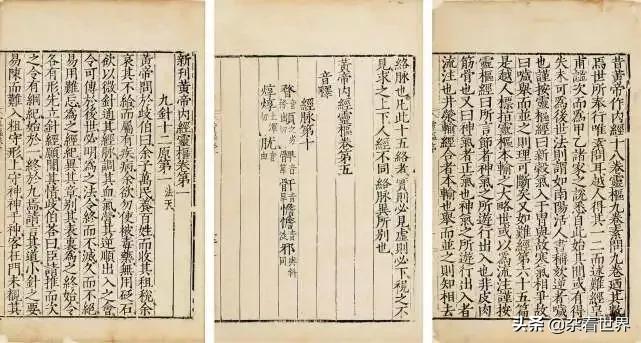 昔黃帝作內經十八卷靈樞九卷素問九卷廼其數
焉世所奉行唯素問耳越人得其一二而述難經皇
甫謐次而為甲乙諸家之說悉自此始其間或有得
失未可為後世法則謂如南陽活人書稱欬逆者噦
也謹按靈樞經曰新穀氣入于胃與故寒氣相爭故
曰噦舉而並之則理可斷矣又如難經第六十五篇
是越人標指靈樞本輸之大略世或以為流注謹按
靈樞經曰所言節者神氣之所遊行出入也非皮肉
筋骨也又曰神氣者正氣也神氣之所遊行出入者
流注也井滎輸經合者本輸也舉而並之則知相去
絡脉也凡此十五絡者實則必見虛則必下視之不
見求之上下人經不同絡脉異所別也
黃帝內經靈樞卷第五
音釋
經脉第十
新刊黃帝內經靈樞卷第一
九針十二原第一 法天
黃帝問於歧伯曰余子萬民養百姓而收其租稅余
哀其不給而屬有疾病余欲勿使被毒藥無用砭石
欲以微針通其經脉調其血氣營其逆順出入之會
令可傳於後世必明為之法令終而不滅久而不絕
易用難忘為之經紀異其章別其表裏為之終始令
各有形先立針經願聞其情歧伯荅曰臣請推而次
之令有綱紀始於一終於九焉請言其道小針之要
易陳而難入粗守形上守神神乎神客在門未覩其
头条 @杂看世界